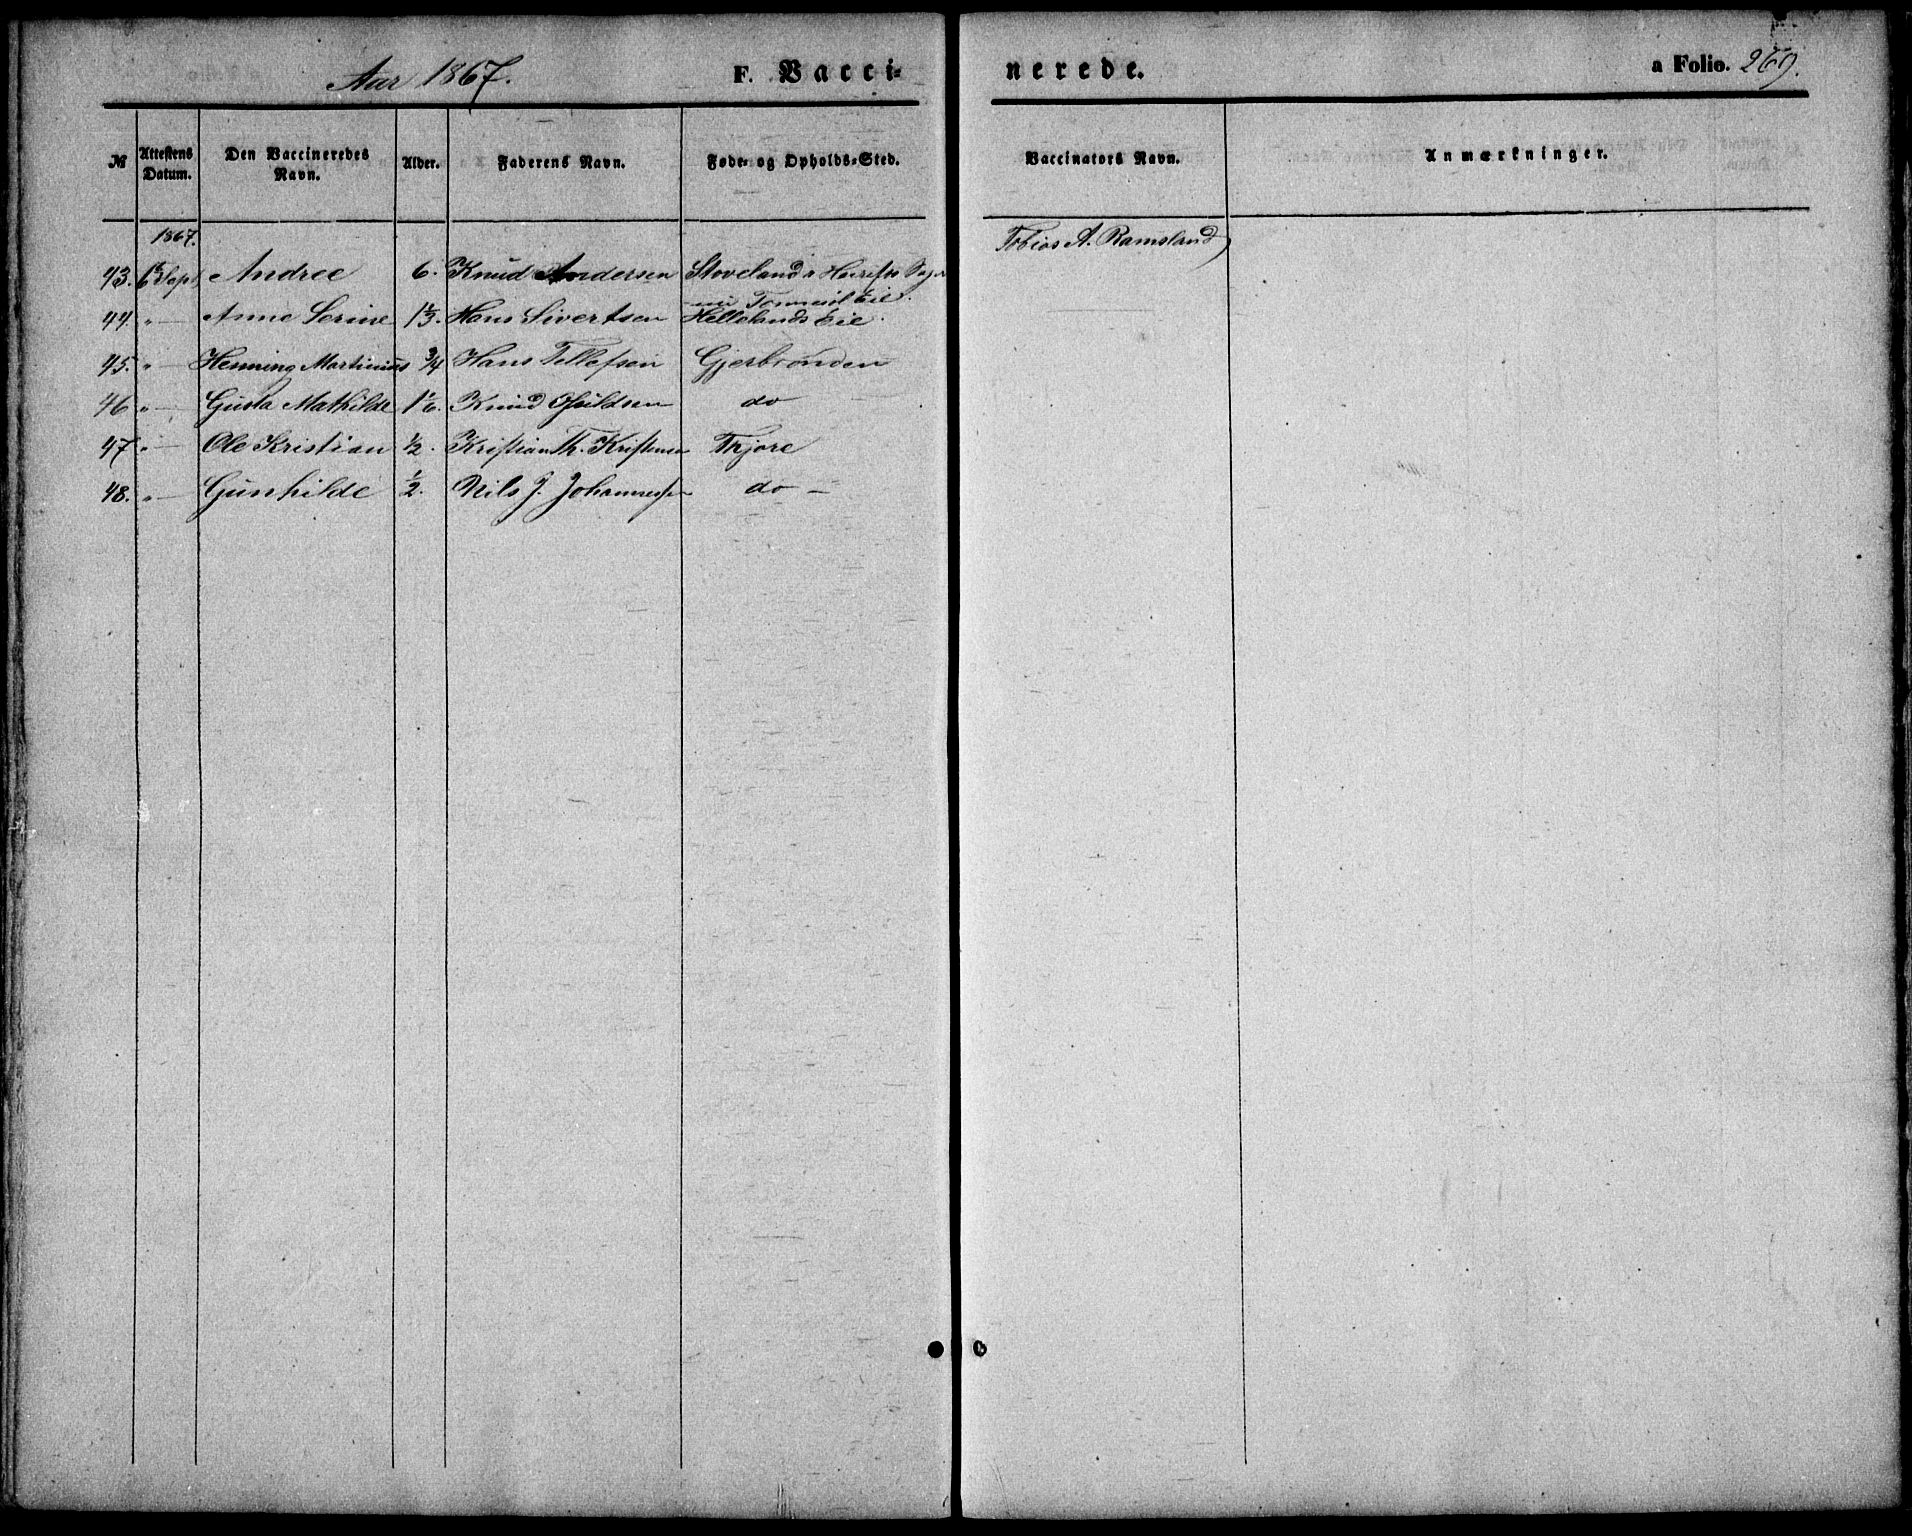 Aar 1867. F. Vacci- nerede. a Folio. 269.
№ Attestens Datum. Den Vaccineredes Navn. Alder. Faderens Navn. Føde- og Opholds-Sted. Vaccinators Navn. Anmærkninger.
1867. Tobias A. Ramsland
43. Sept Andree 6. Knud Andersen Stoveland
44. " — Anne Serine Hans Sivertsen Hellelands Eie.
45. " — Henning Martinius 3/4 Hans Tellefsen Gjerbrönden
46 " — Gusta Mathilde 1 1/6. Knud do
47 " — Ole Kristian 1/2. Kristian Th. Kristensen Thjore
48. " — Gunhilde 1/2. Nils J. Johannessen do —